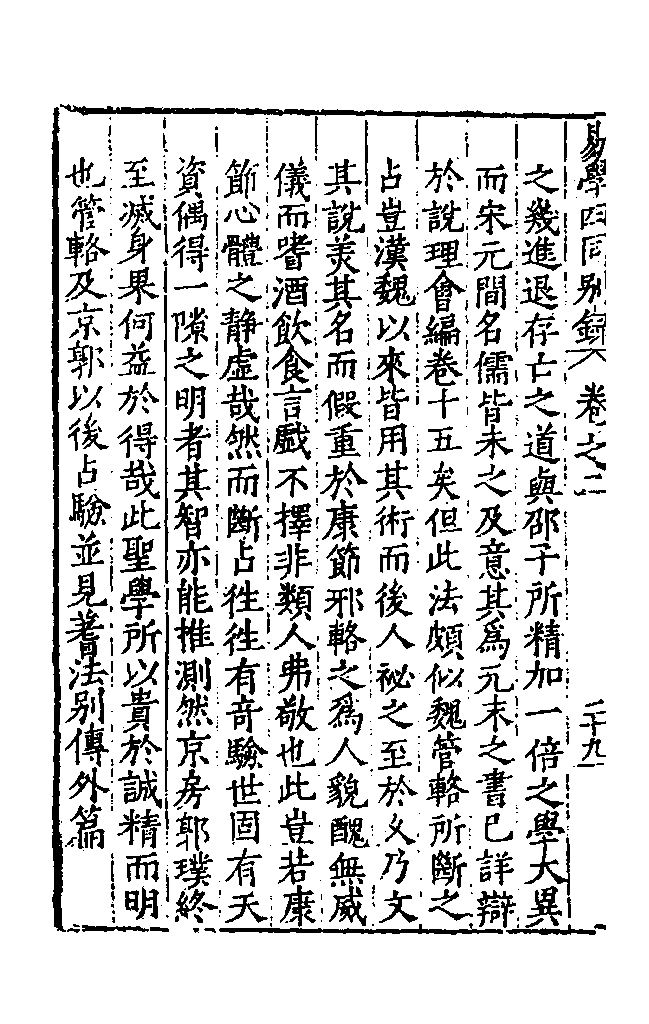 易學四同別錄 卷之二 二十九
之幾進退存亡之道與邵子所精加一倍之學大異
而宋元間名儒皆未之及意其爲元末之書已詳辯
於說理會編卷十五矣但此法頗似魏管輅所斷之
占豈漢魏以來皆用其術而後人祕之至於久乃文
其說羙其名而假重於康節邪輅之爲人貌醜無威
儀而嗜酒飲食言戲不擇非類人弗敬也此豈若康
節心體之静虛哉然而斷占徃徃有竒驗世固有天
資偶得一隙之明者其智亦能推測然京房郭璞終
至滅身果何益於得哉此聖學所以貴於誠精而明
也管輅及京郭以後占驗並見蓍法別傳外篇